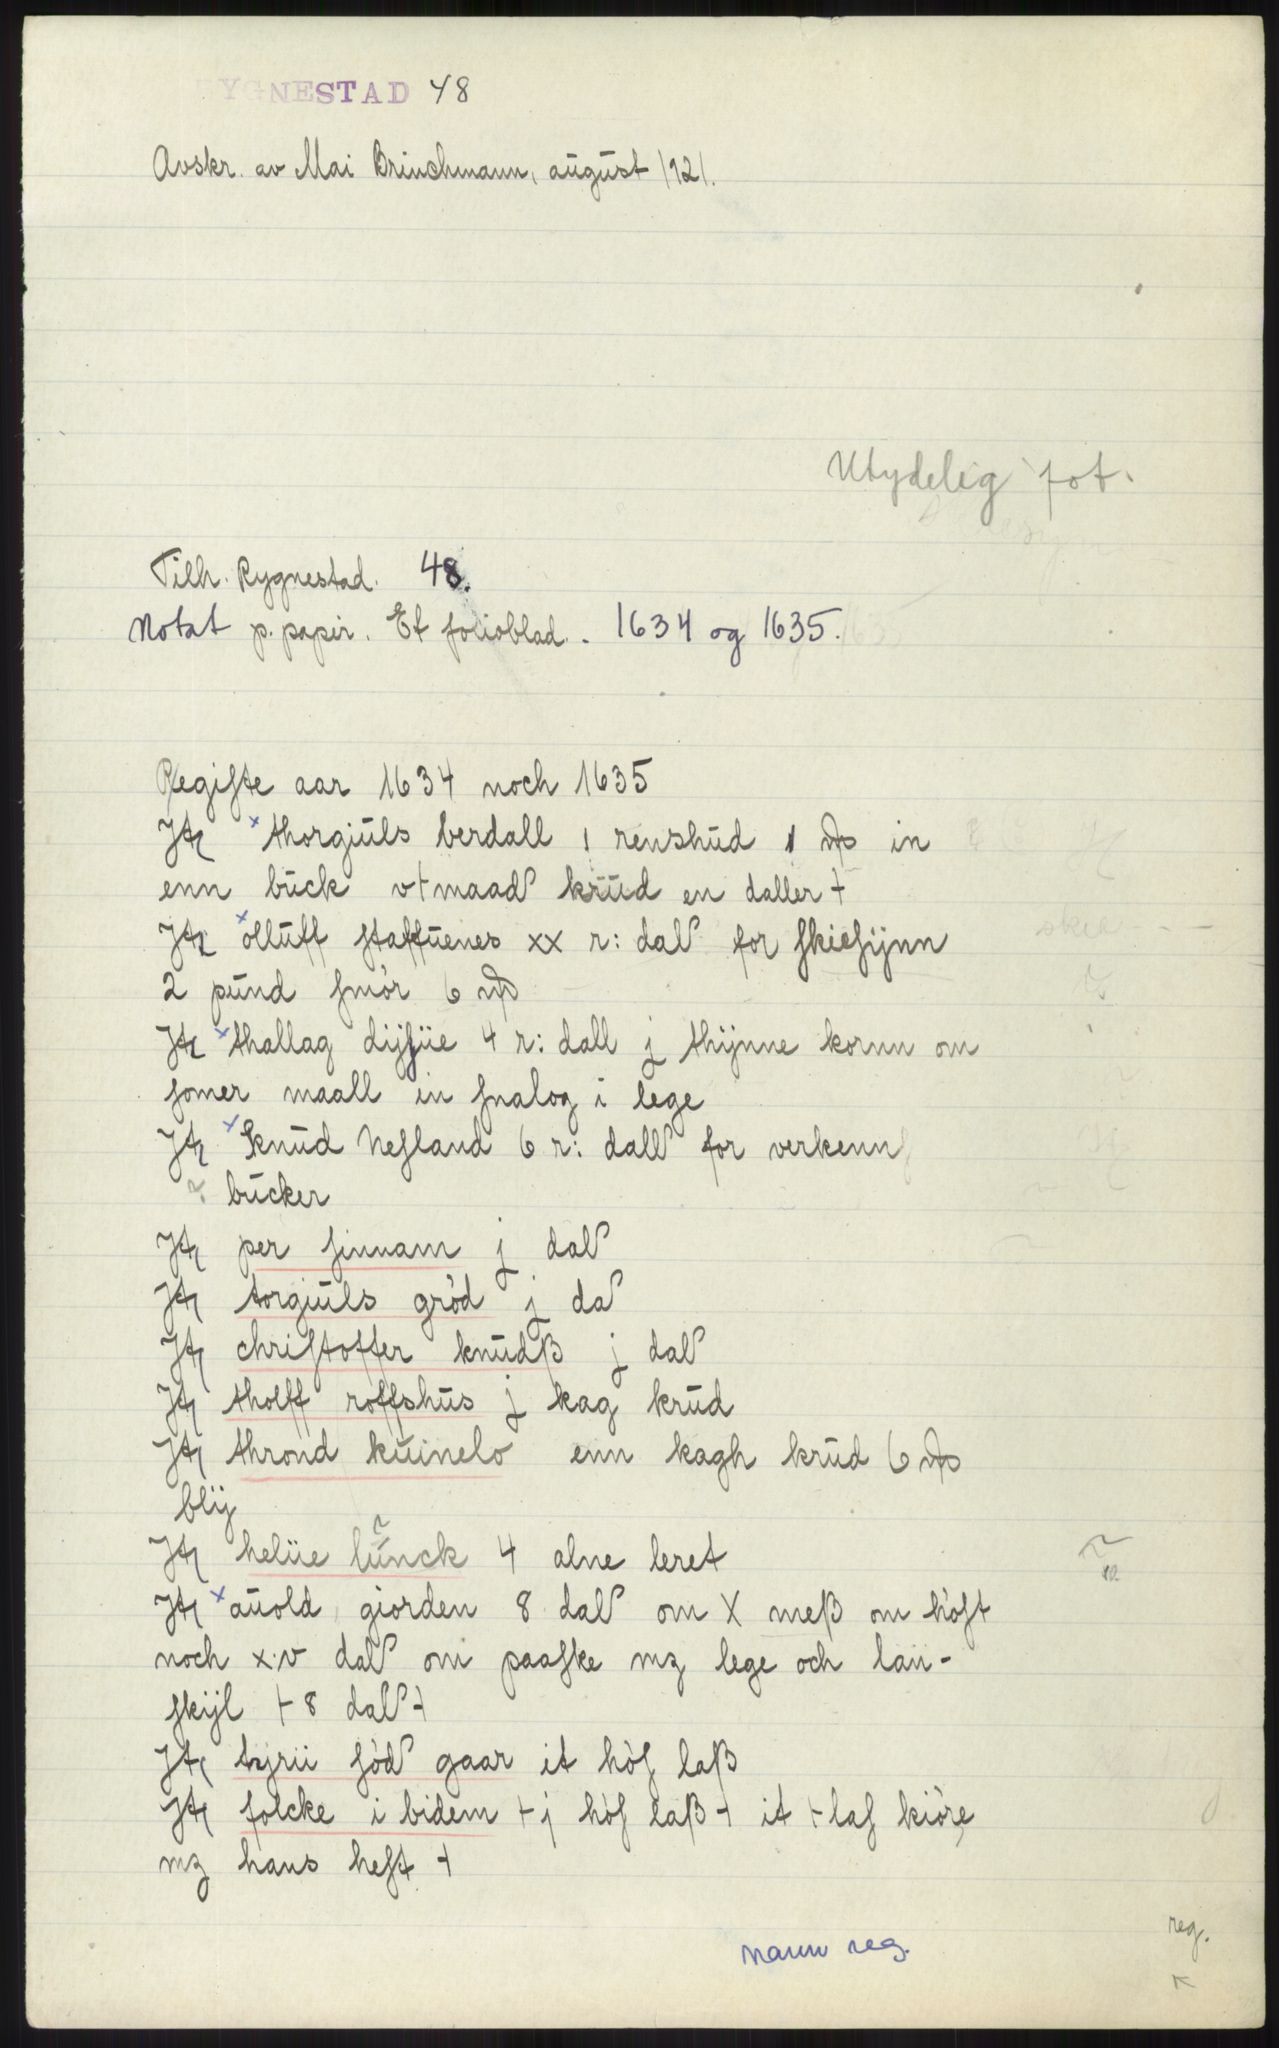 RYGNESTAD 48
Avskr. av Mai Brinchmann, august 1921.
Utydelig fot.
Tilh. Rygnestad. 48.
Notat p. papir. Et folioblad. 1634 og 1635.
Regiſte aar 1634 noch 1635
Jtꝭ thorgiuls berdall 1 renshud 1 in
enn buck v+maad krud en daller +
Jtꝭ olluff ſtaffuenes xx r: dal for ſkieſÿnn
2 pund ſmór 6
Jtꝭ thallag dijſue 4 r: dall j thÿnne kornn om
ſomer maall in ſnalog i lege
Jtꝭ knud Neſland 6 r: dall for verkenn
? bucker
Jtꝭ per ſinnam j dal
Jtꝭ torgiuls gród j da
Jtꝭ chriſtoffer knudß j dal
Jtꝭ tholff roffshus j kag krud
Jtꝭ thrond kuinelo enn kagh krud 6
blÿ
Jtꝭ helue lunck 4 alne leret
Jtꝭ auold giorden 8 dal om X meß om hóſt
noch x.v dal om paaſke mz lege och lan-
ſkÿl + 8 dal +
Jtꝭ tyrii ſód gaar it hóſ laß
Jtꝭ folcke i bidem + j hóſ laß + it + laſ kióre
mz hans heſt +
navn reg.
reg.